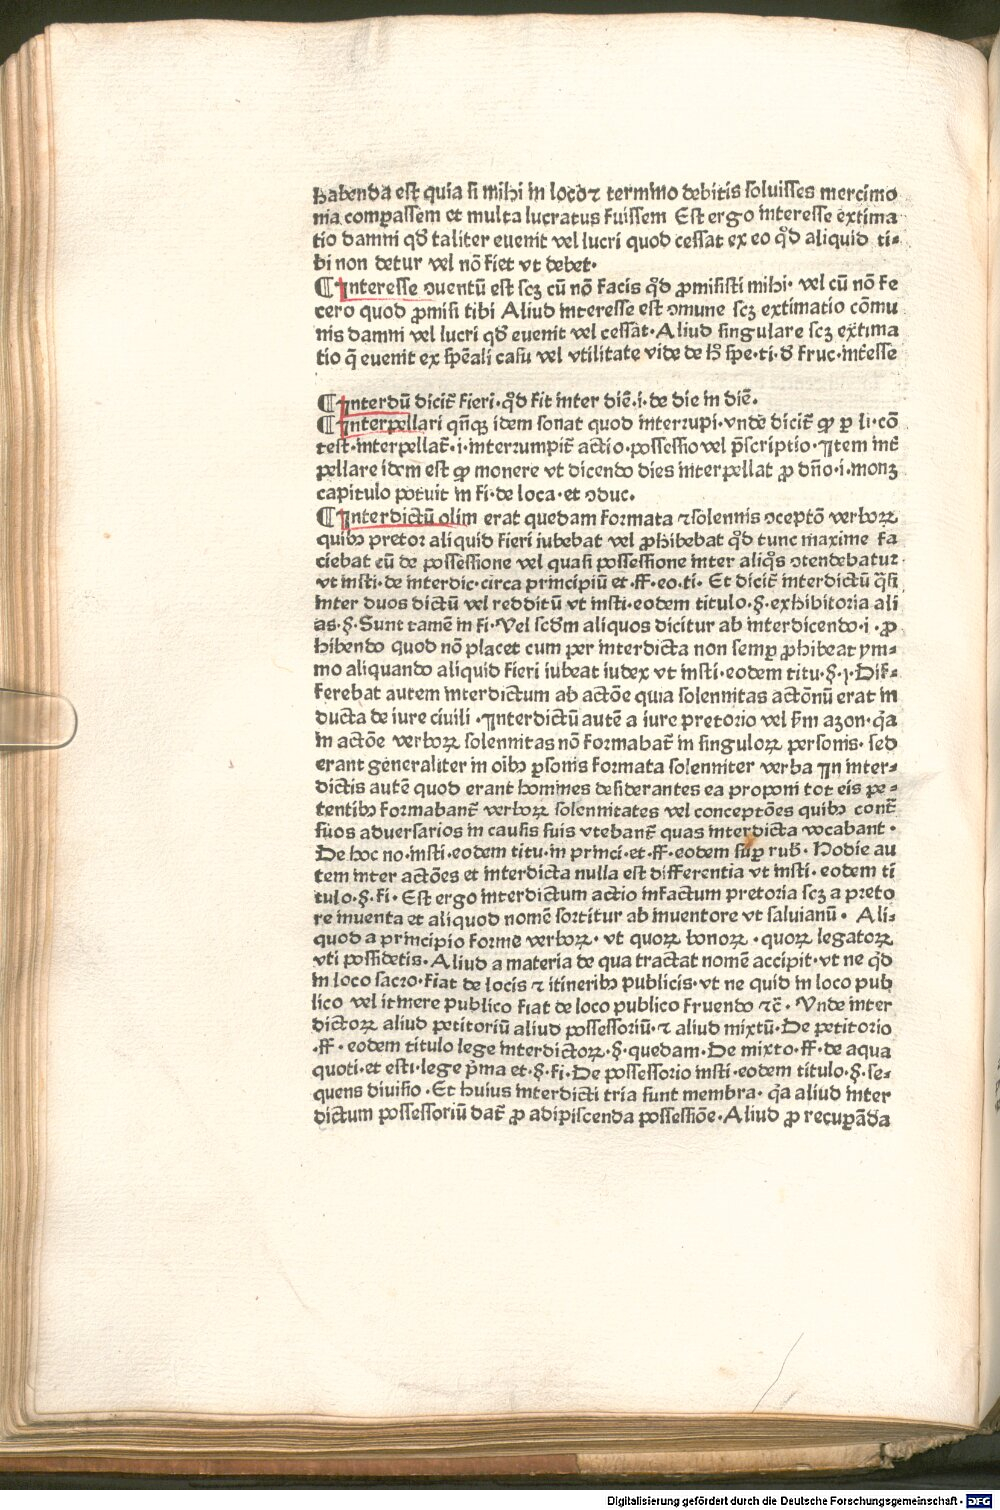 habenda est quia si mihi in loco ⁊ termino debitis soluisses mercimo
nia comparassem et multa lucratus fuissem Est ergo interesse extima
tio damni qd̄ taliter euenit vel lucri quod cessat ex eo qd̄ aliquid ti-
bi non detur vel nō fiet vt debet.
¶ Interesse ꝯuentū est scꝫ cū nō facis qd̄ ꝓmisisti mihi. vel cū nō fe
cero quod ꝓmisi tibi Aliud interesse est ꝯmune scꝫ extimatio cōmu
nis damni vel lucri qd̄ euenit vel cessat. Aliud singulare scꝫ extima
tio q̄ euenit ex spēali casu vel vtilitate vide de h̄ spe. ti. d̄ fruc. int̄esse
¶ Interdū dicit̄ fieri. qd̄ fit inter diē. i. de die in diē.
¶ Interpellari qn̄qꝫ idem sonat quod interrupi. vnde dicit̄ ꝙ ꝑ li. cō
test. interpellat̄. i. interrumpit̄ actio. possessio vel p̄scriptio. Item int̄
pellare idem est ꝙ monere vt dicendo dies interpellat ꝓ dn̄o. i. monꝫ
capitulo potuit in fi. de loca. et ꝯduc.
¶ Interdictū olim erat quedam formata ⁊ solennis ꝯceptō verboꝝ
quibꝫ pretor aliquid fieri iubebat vel ꝓhibebat qd̄ tunc maxime fa
ciebat cū de possessione vel quasi possessione inter aliqͦs ꝯtendebatur
vt insti. de interdic. circa principiū et. ff. eo. ti. Et dicit̄ interdictū q̄si
inter duos dictū vel redditū vt insti. eodem titulo. §. exhibitoria ali
as. §. Sunt tamē in fi. Vel scd̄m aliquos dicitur ab interdicendo. i. ꝓ
hibendo quod nō placet cum per interdicta non semꝑ ꝓhibeat ym-
mo aliquando aliquid fieri iubeat iudex vt insti. eodem titu. §. j. Dif-
ferebat autem interdictum ab actōe quia solennitas actōnū erat in
ducta de iure ciuili. Interdictū autē a iure pretorio vel fm̄ azon. q̄a
in actōe verboꝝ solennitas nō formabat̄ in singuloꝝ personis. sed
erant generaliter in oībꝫ ꝑsonis formata solenniter verba In inter-
dictis autē quod erant homines desiderantes ea proponi tot eis pe-
tentibꝫ formabant̄ verboꝝ solennitates vel conceptōes quibꝫ cont̄
suos aduersarios in causis suis vtebant̄ quas interdicta vocabant.
De hoc no. insti. eodem titu. in princi. et. ff. eodem suꝑ rub̄. Hodie au
tem inter actōes et interdicta nulla est differentia vt insti. eodem ti
tulo. §. fi. Est ergo interdictum actio infactum pretoria scꝫ a preto
re inuenta et aliquod nomē sortitur ab inuentore vt saluianū. Ali-
quod a principio forme verboꝝ. vt quoꝝ bonoꝝ. quoꝝ legatoꝝ
vti possidetis. Aliud a materia de qua tractat nomē accipit. vt ne qd̄
in loco sacro. fiat de locis ⁊ itineribꝫ publicis. vt ne quid in loco pub
lico vel itinere publico fiat de loco publico fruendo ⁊c̄. Vnde inter
dictoꝝ aliud petitoriū aliud possessoriū. ⁊ aliud mixtū. De petitorio
.ff. eodem titulo lege interdictoꝝ. §. quedam. De mixto. ff. de aqua
quoti. et esti. lege p̄ma et. §. fi. De possessorio insti. eodem titulo. §. se-
quens diuisio. Et huius interdicti tria sunt membra. q̄a aliud inter
dictum possessoriū dat̄ ꝓ adipiscenda possessiōe. Aliud ꝓ recuꝑāda
Digitalisierung gefördert durch die Deutsche Forschungsgemeinschaft - DFG